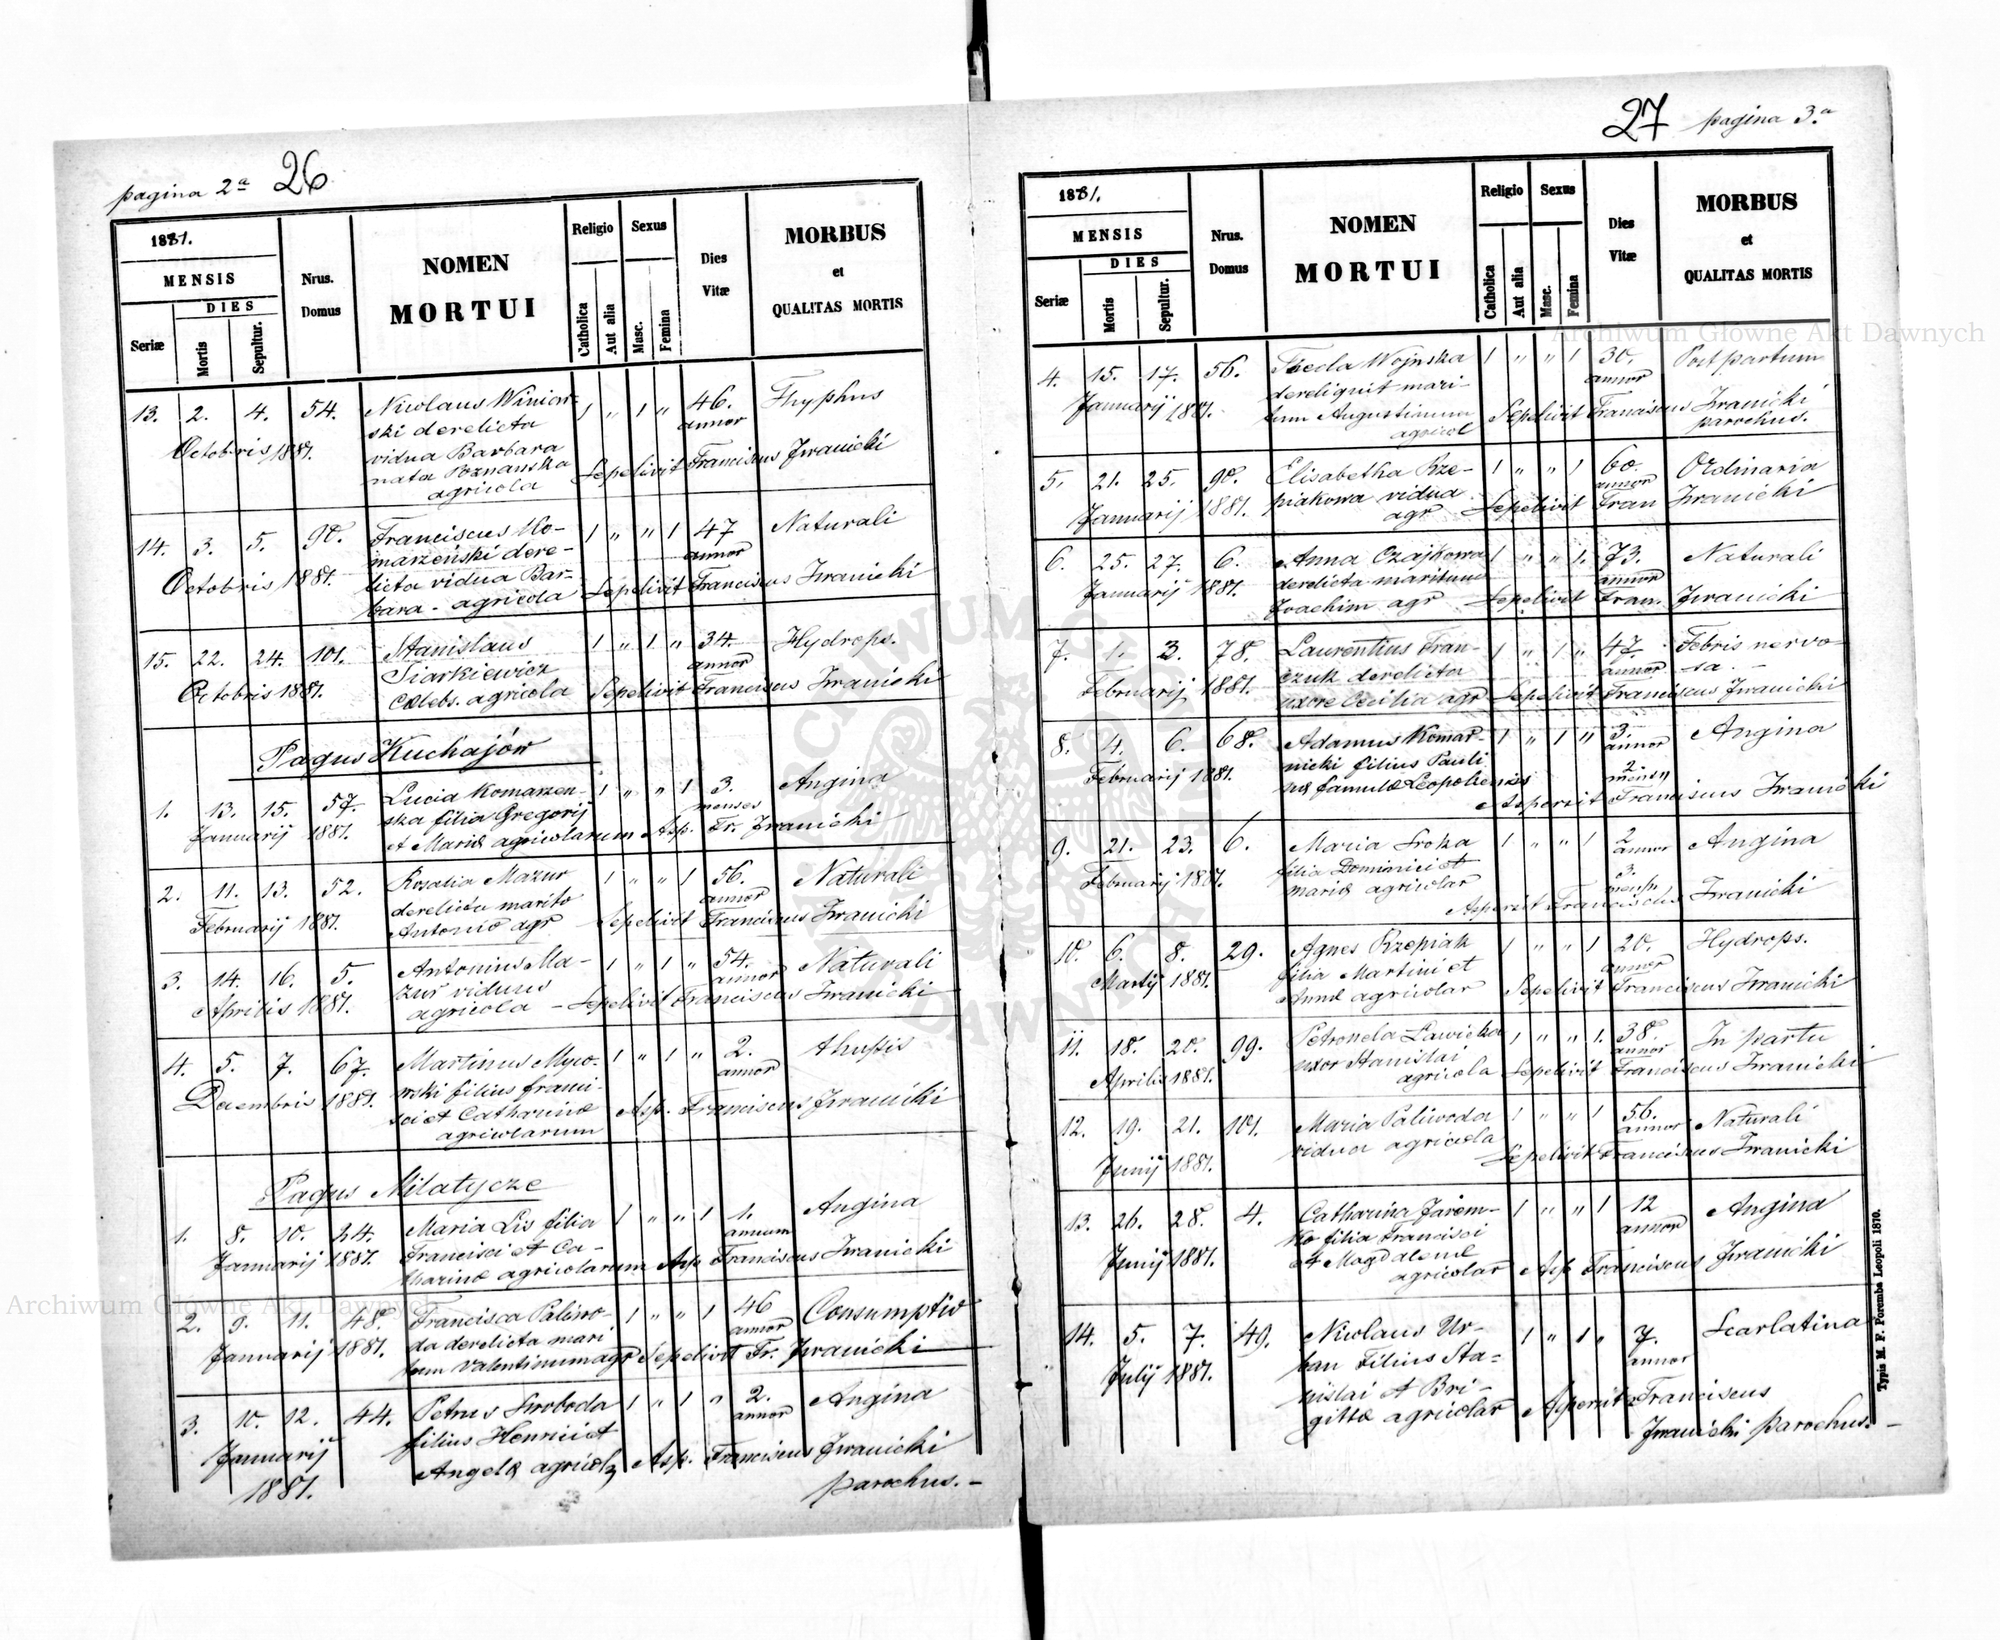 pagina 2a 26
1881.
MENSIS
DIES
Seriæ
Mortis
Sepultur.
Nrus.
Domus
NOMEN
MORTUI
Religio
Catholica
Aut alia
Sexus
Masc.
Femina
Dies
Vitæ
MORBUS
et
QUALITAS MORTIS
13. 2. 4. 54. Nicolaus Winiar- 1 " 1 " 46. Thyphus
ski derelicta annor
Octobris 1881. vidua Barbara
nata Poznanska Sepelivit Franciscus Iwanicki
agricola
14. 3. 5. 90. Franciscus Ko- 1 " " 1 47 Naturali
marzeński dere- annor
Octobris 1881. licta vidua Bar- Sepelivit Franciscus Iwanicki
bara - agricola
15. 22. 24. 101. Stanislaus 1 " 1 " 34. Hydrops.
Siarkiewicz annor
Octobris 1881. Cœlebs. agricola Sepelivit Franciscus Iwanicki
Pagus Kuchajów
1. 13. 15. 57. Lucia Komarzen- 1 " " 1 3. Angina
ska filia Gregorij menses
Januarij 1881. et Mariæ agricolarum Asp. Fr. Iwanicki
2. 11. 13. 52. Rosalia Mazur 1 " " 1 56. Naturali
derelicta marito annor
Februarij 1881. Antonio agr Sepelivit Franciscus Iwanicki
3. 14. 16. 5. Antonius Ma- 1 " 1 " 54. Naturali
zur viduus annor
Aprilis 1881. agricola - Sepelivit Franciscus Iwanicki
4. 5. 7. 67. Martinus 1 " 1 " 2. thussis
filius Franci- annor
Decembris 1881. sci et Catharinæ Asp. Franciscus Iwanicki
agricolarum
Pagus Milatycze
1. 8. 10. 24. Maria Lis filia 1 " " 1 1. Angina
Francisci et Ca- annum
Januarij 1881. tharinæ agricolarum Asp Franciscus Iwanicki
2. 9. 11. 48. Francisca Paliwo- 1 " " 1 46 Consumptio
da derelicta mari annor
Januarij 1881. tum Valentinum agr Sepelivit Fr. Iwanicki
3. 10. 12. 44. Petrus Swoboda 1 " 1 " 2. Angina
filius Henrici et annor
Januarij Angelæ agricol Asp. Franciscus Iwanicki
1881. parochus. -
27 pagina 3.a
1881.
MENSIS
DIES
Seriæ
Mortis
Sepultur.
Nrus.
Domus
NOMEN
MORTUI
Religio
Catholica
Aut alia
Sexus
Masc.
Femina
Dies
Vitæ
MORBUS
et
QUALITAS MORTIS
4. 15. 17. 56. Thecla Wojnska 1 " " 1 30. Post partum
dereliquit mari- annor
Januarij 1881. tum Augustinum Sepelivit Franciscus Iwanicki
agricol parochus.
5. 21. 25. 90. Elisabetha Rze- 1 " " 1 60. Ordinaria
piakowa vidua annor
Januarij 1881. agr Sepelivit Fran Iwanicki
6. 25. 27. 6. Anna Czajkowa 1 " " 1. 73. Naturali
derelicta maritum annor
Januarij 1881. Joachim agr Sepelivit Fran. Iwanicki
7. 1. 3. 78. Laurentius Fran- 1 " 1 " 47. Febris nervo-
czuk derelicta annor sa. -
Februarij 1881. uxore Cecilia agr Sepelivit Franciscus Iwanicki
8. 4. 6. 68. Adamus Komar- 1 " 1 " 3. Angina
nicki filius Pauli annor
Februarij 1881. famulæ Leopoliensis 2 mensy
Asperzit Franciscus Iwanicki
9. 21. 23. 6. Maria Sroka 1 " " 1 2 Angina
filia Dominici et annor
Februarij 1881. mariæ agricolar 3.
Asperzit Franciscus Iwanicki
10. 6. 8. 29. Agnes Rzepiak 1 " " 1 20. Hydrops.
filia Martini et annor
Martij 1881. Annæ agricolar Sepelivit Franciscus Iwanicki
11. 18. 20. 99. Petronela Sawicka 1 " " 1. 38. In partu
uxor Stanislai annor
Aprilis 1881. agricola Sepelivit Franciscus Iwanicki
12. 19. 21. 101. Maria Paliwoda 1 " " 1 56. Naturali
vidua agricola annor
Junij 1881. Sepelivit Franciscus Iwanicki
13. 26. 28. 4. Catharina Jarem- 1 " " 1 12 Angina
ko filia Francisci annor
Junij 1881. et Magdalenæ
agricolar Asp Franciscus Iwanicki
14. 5. 7. 49. Nicolaus Ur- 1 " 1 " 7. Scarlatina
ban Filius Sta= annor
Julij 1881. nislai et Bri-
gittæ agricolar Asperzit Franciscus
Iwanicki parochus. -
Typis M. F. Poremba Leopoli 1870.
Archiwum Główne Akt Dawnych
Archiwum Główne Akt Dawnych
ARCHIWUM GŁÓWNE AKT DAWNYCH